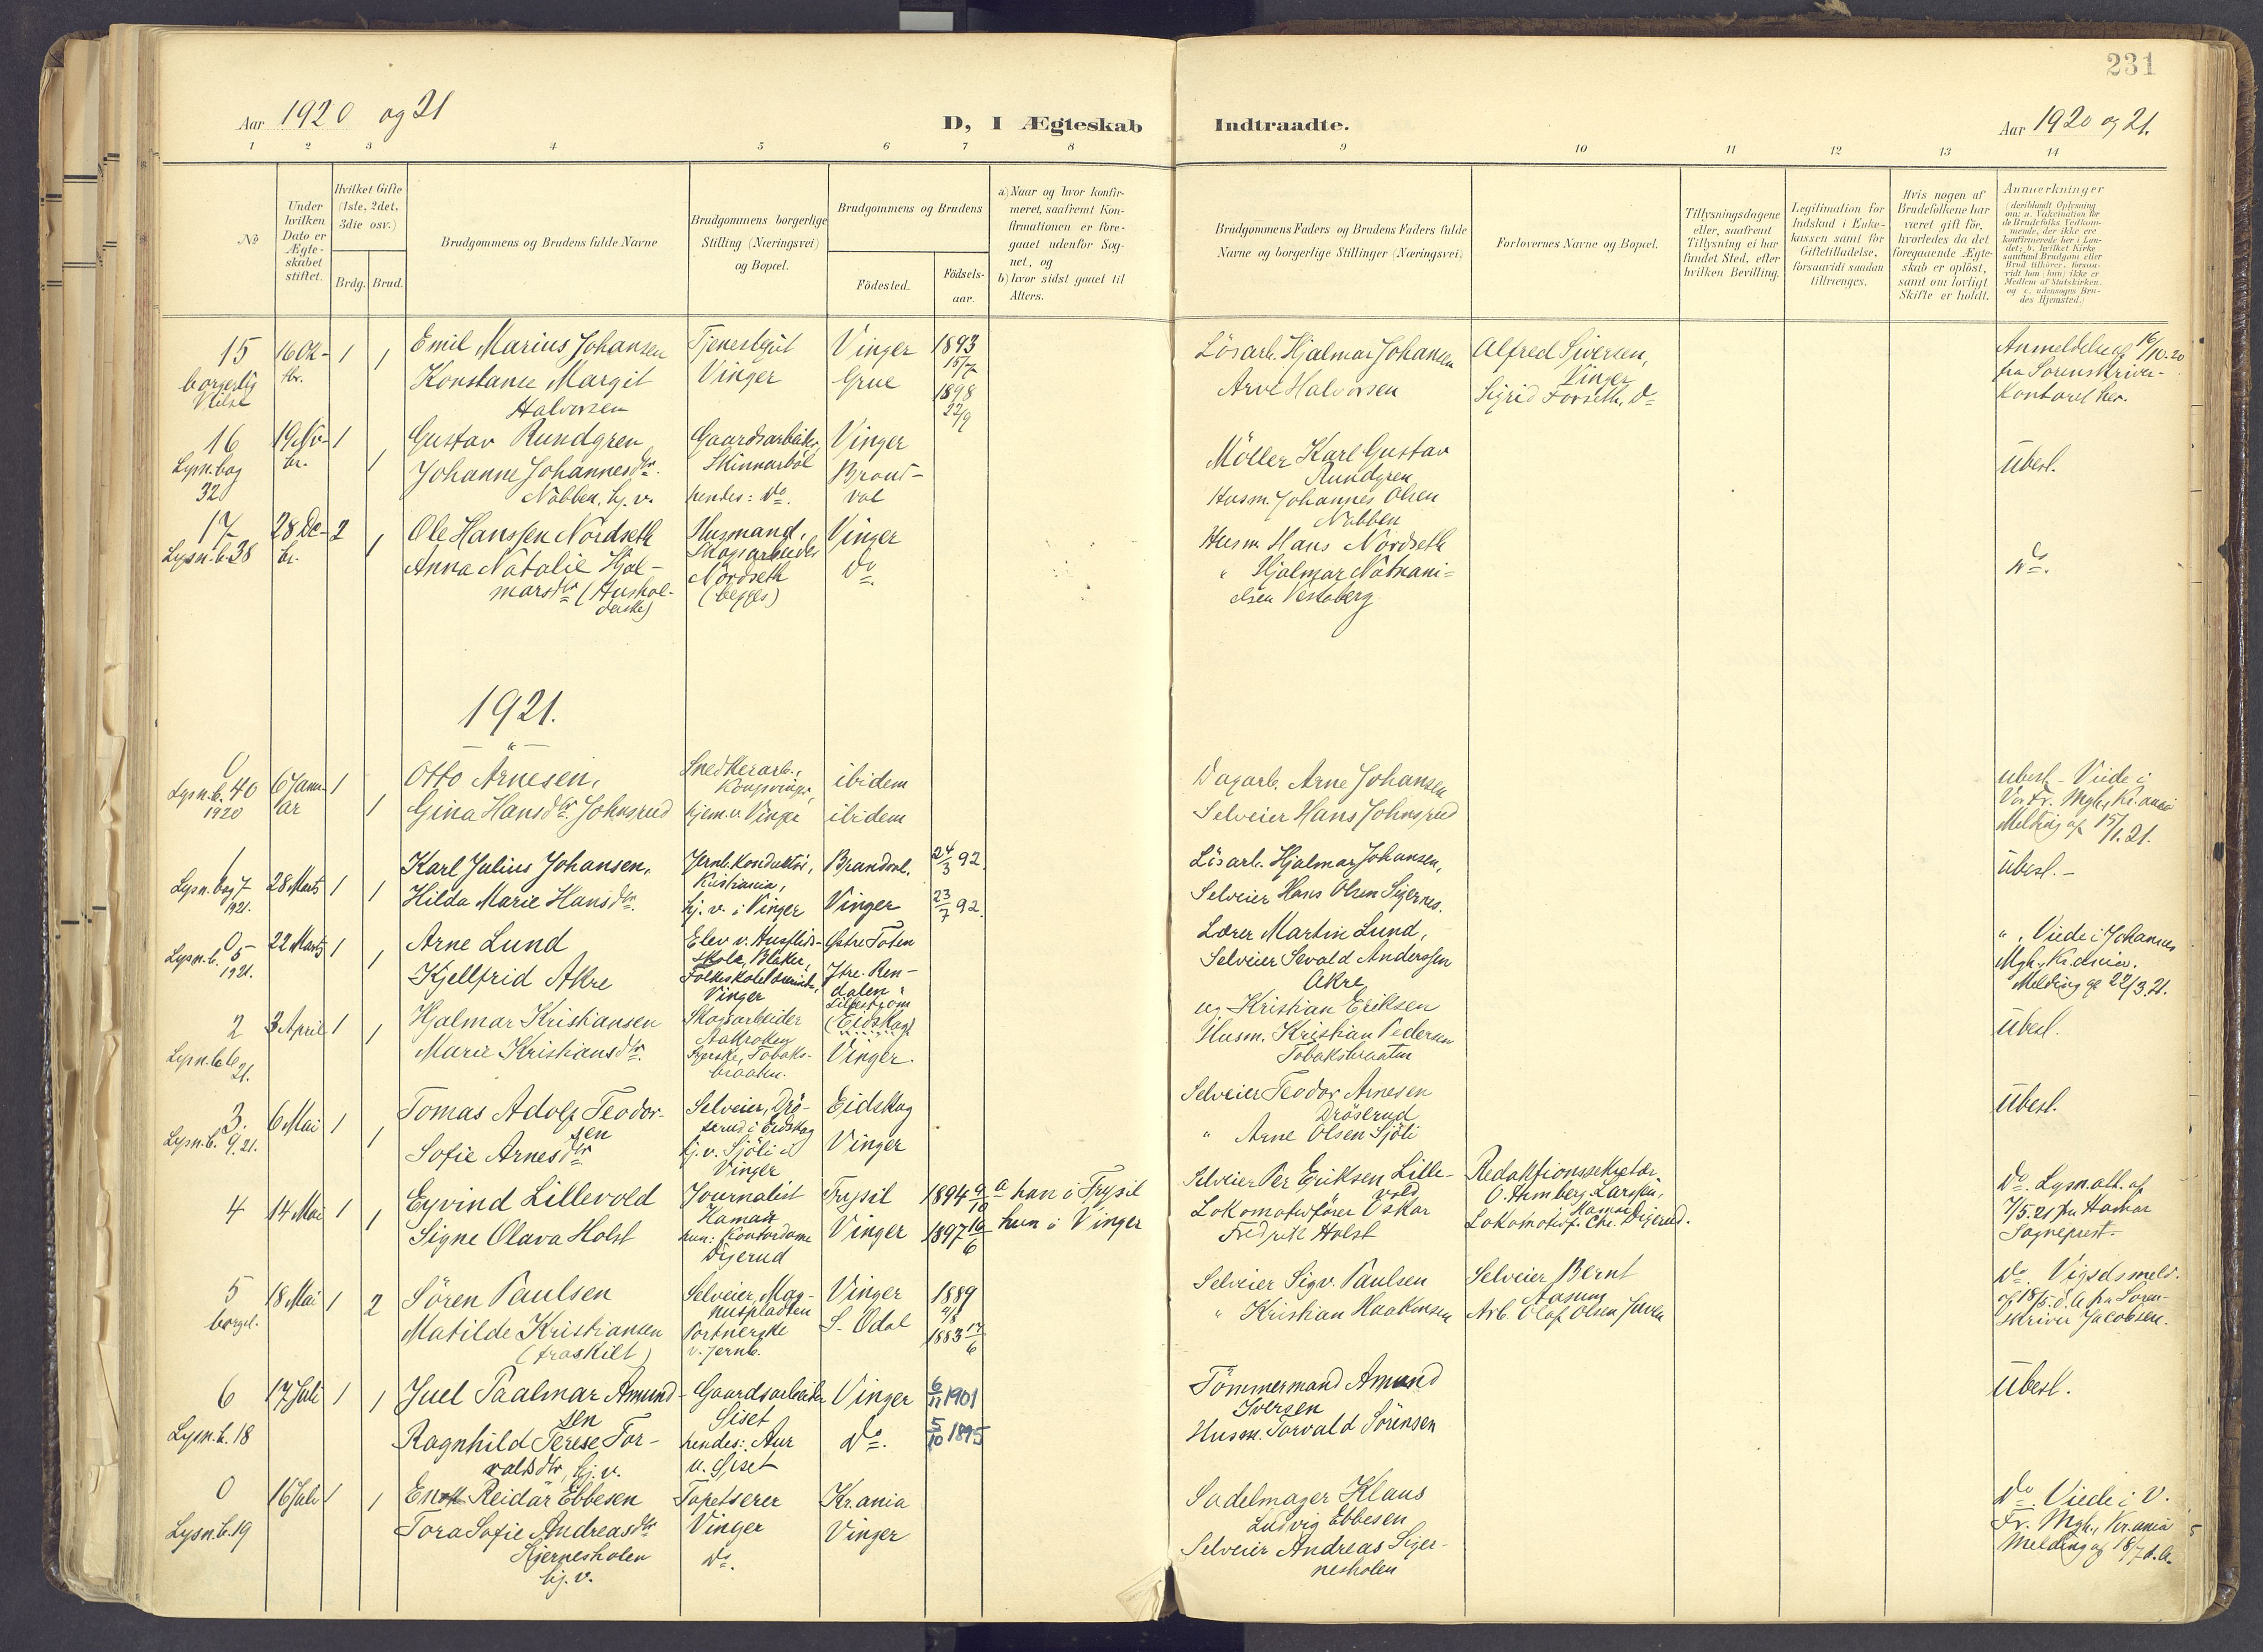 231
Aar 1920 og 21
D, I Ægteskab Indtraadte.
Aar 1920 og 21.
1 2 3 4 5 6 7 8 9 10 11 12 13 14
No
Under hvilken Dato er Ægteskabet stiftet.
Hvilket Gifte (1ste, 2det, 3die osv.)
Brdg. Brud.
Brudgommens og Brudens fulde Navne
Brudgommens borgerlige Stilling (Næringsvei) og Bopæl.
Brudgommens og Brudens
Födested.
Födsels-aar.
a) Naar og hvor konfir-
meret, saafremt Kon-
firmationen er fore-
gaaet udenfor Sog-
net, og
b) hvor sidst gaaet til
Alters.
Brudgommens Faders og Brudens Faders fulde
Navne og borgerlige Stillinger (Næringsvei)
Forlovernes Navne og Bopæl.
Tillysningsdagene
eller, saafremt
Tillysning ei har
fundet Sted, efter
hvilken Bevilling.
Legitimation for
Indskud i Enke-
kassen samt for
Giftetilladelse,
forsaavidt saadan
tiltrænges.
Hvis nogen af
Brudefolkene har
været gift för,
hvorledes da det
foregaaende Ægte-
skab er oplöst,
samt om lovligt
Skifte er holdt.
Anmerkninger
(deriblandt Oplysning
om: a. Vakcination for
de Brudefolks Vedkom-
mende, der ikke ere
konfirmerede her i Lan-
det; b. hvilket Kirke-
samfund Brudgom eller
Brud tilhører, forsaa-
vidt han (hun) ikke er
Medlem af Statskirken,
og c. udensogns Bru-
des Hjemsted.)
15 16 Ok- 1 1 Emil Marius Johansen Tjenestgut Vinger 1893 15/7 Lösarb. Hjalmar Johansen Alfred Siversen, Anmeldelse af 16/10.20
borgerlig Vielse tbr. Konstanse Margit Vinger Grue 1898 22/9 Arve Halvorsen Vinger fra Sorenskriver-
Halvorsen Sigrid Forseth, Do kontoret her.
16 19 Nv- 1 1 Gustav Rundgren Gaardsarbeider, Vinger Möller Karl Gustav
Lysn.bog br. Johanne Johannesdtr. Skinnarböl Brand- Rundgren Ubesl.
32 Nabben, hj. v. hendes: Do. val Husm. Johannes Olsen
Nabben
17 28 De- 2 1 Ole Hanssen Nordseth Husmand, Vinger Husm. Hans Nordseth
Lysn.b.38 br. Anna Natalie Hjal- Skogsarbeider Do " Hjalmar Natnani- Do.
marsdtr (Hushol- Nordseth elsen Vestaberg
derske) (begges)
1921.
0 6 Janu- 1 Otto Arnesen, Snedkerarb., ibidem Dagarb. Arne Johansen ubesl. - Viede i
Lysn.b. 40 ar 1 Gina Hansdtr. Johnsrud Kongsvinger, ibidem Selveier Hans Johnsrud Vor Fr. Mgh., Kr.ania
1920 hjem. v. Vinger Melding af 15/1.21.
1 28 Marts 1 1 Karl Julius Johansen, Jernb. Konduktör, Brandval. 24/3 92. Lösarb. Hjalmar Johansen, Ubesl.-
Lysn. bog 7 Hilda Marie Hansdtr. Kristiania, Vinger 23/7 92. Selveier Hans Olsen Sigernes.
1921. hj. v. i Vinger
0 22 Marts 1 1 Arne Lund Elev v. Husflids- Östre Toten Lærer Martin Lund, ". Viede i Johannes
Lysn.b. 5 Kjellfrid Akre skole, Blaker, Ytre Ren- Selveier Sevald Anderssen Mgh., Kr.ania.
1921. Vinger dalen Akre Melding af 22/3.21.
2 3 April 1 1 Hjalmar Kristiansen Skogsarbeider (Eidskog) ug. Kristian Eriksen Ubesl.
Lysn.b.6 Marie Kristiansdtr. Vinger. Husm. Kristian Pedersen
21. braaten. Tobaksbraaten
3. 6 Mai 1 1 Tomas Adolf Teodor- Selveier, Drö- Eidskog Selveier Teodor Arnesen Ubesl.
Lysn.b. 9.21. sen serud i Eidskog Dröserud
Sofie Arnesdtr hj. v. Sjöli i Vinger " Arne Olsen Sjöli
Vinger
4 14 Mai 1 1 Eyvind Lillevold Journalist Trysil 1894 9/10 a han i Trysil Selveier Per Eriksen Lille- Redaktionssekretær Do. Lysn.att. af
vold O. Larssen,
Signe Olava Holst Hamar Vinger 1897 10/6 hun i Vinger Lokomotivförer Oskar Hamar 7/5.21 fra Hamar
hun: Kontordame Fredrik Holst Lokomotivf. Chr. Digerud. Sogneprest.
Digerud
5 18 Mai 1 2 Sören Paulsen Selveier, Mag- Vinger 1889 Selveier Sigv. Paulsen Selveier Bernt Do. Vigselsmeld.
borgel. Matilde Kristiansen nuspladsen S. Odal 1883 17/6 " Kristian Haakonsen Aasum af 18/5. d. A. fra Soren-
(fraskilt) Portnerske Arb. Olaf Olsen skriver Jacobsen.
v. Jernb.
6 17 Juli 1 1 Juel Paalmar Amund- Gaardsarbeider Vinger 6/11 1901 Tömmermand Amund Ubesl.
sen Siset Iversen
Lysn.b. 18 Ragnhild Terese Tor- hendes: Aur Do. 5/10 1895 Husm. Torvald Sörensen
valdsdtr, hj. v. u. Siset
0 16 Juli 1 1 Reidar Ebbesen Tapetserer Kr.ania Sadelmager Klaus Do. Viede i V.
Lysn.b.19 Tora Sofie Andreasdtr Vinger Vinger Ludvig Ebbesen Fr. Mgh., Kr.ania
Do. Selveier Andreas Siger- Melding af 18/7 d.A.
hj. v. nesholen